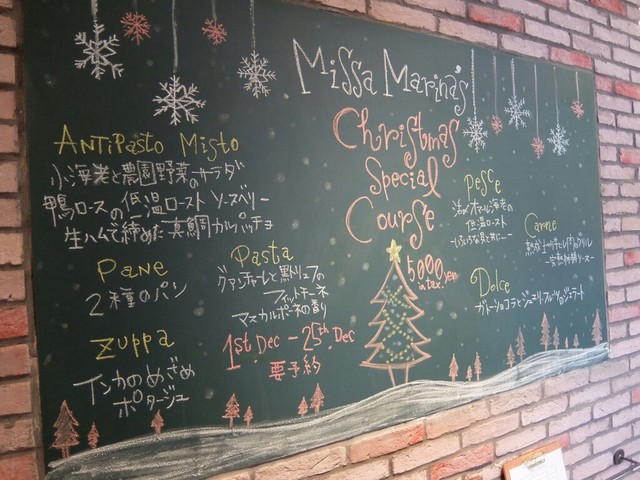 Missa Marina's
Christmas
Special
Course
5000 yen
in tax.
Antipasto Misto
小海老と農園野菜のサラダ
鴨ロースの低温ロースト ソースベリー
生ハムで締めた真鯛カルパッチョ
Pane
2種のパン
Zuppa
インカのめざめ
ポタージュ
Pasta
グァンチャーレと黒トリュフの
フィットチーネ
マスカルポーネの香り
1st.Dec - 25th.Dec
要予約
Pesce
活オマール海老の
低温ロースト
Carne
Dolce
ガトーショコラと